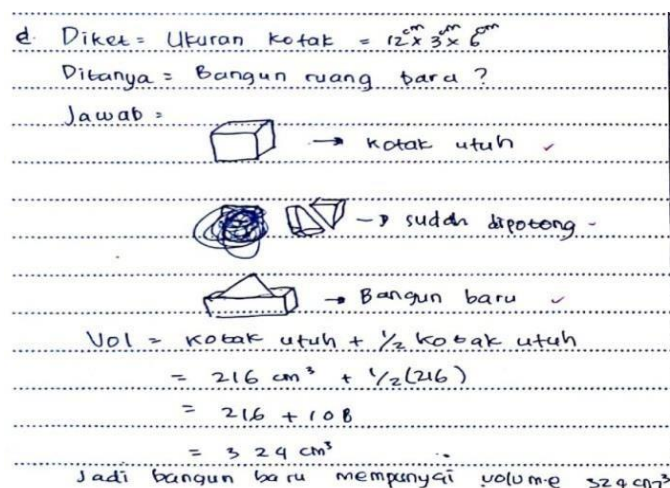 d. Diket = Ukuran kotak = 12 cm x 3 cm x 6 cm
Ditanya = Bangun ruang baru ?
Jawab =
→ kotak utuh ✓
→ sudah dipotong -
→ Bangun baru ✓
Vol = kotak utuh + 1/2 kotak utuh
= 216 cm³ + 1/2 (216)
= 216 + 108
= 324 cm³
Jadi bangun baru mempunyai volume 324 cm³